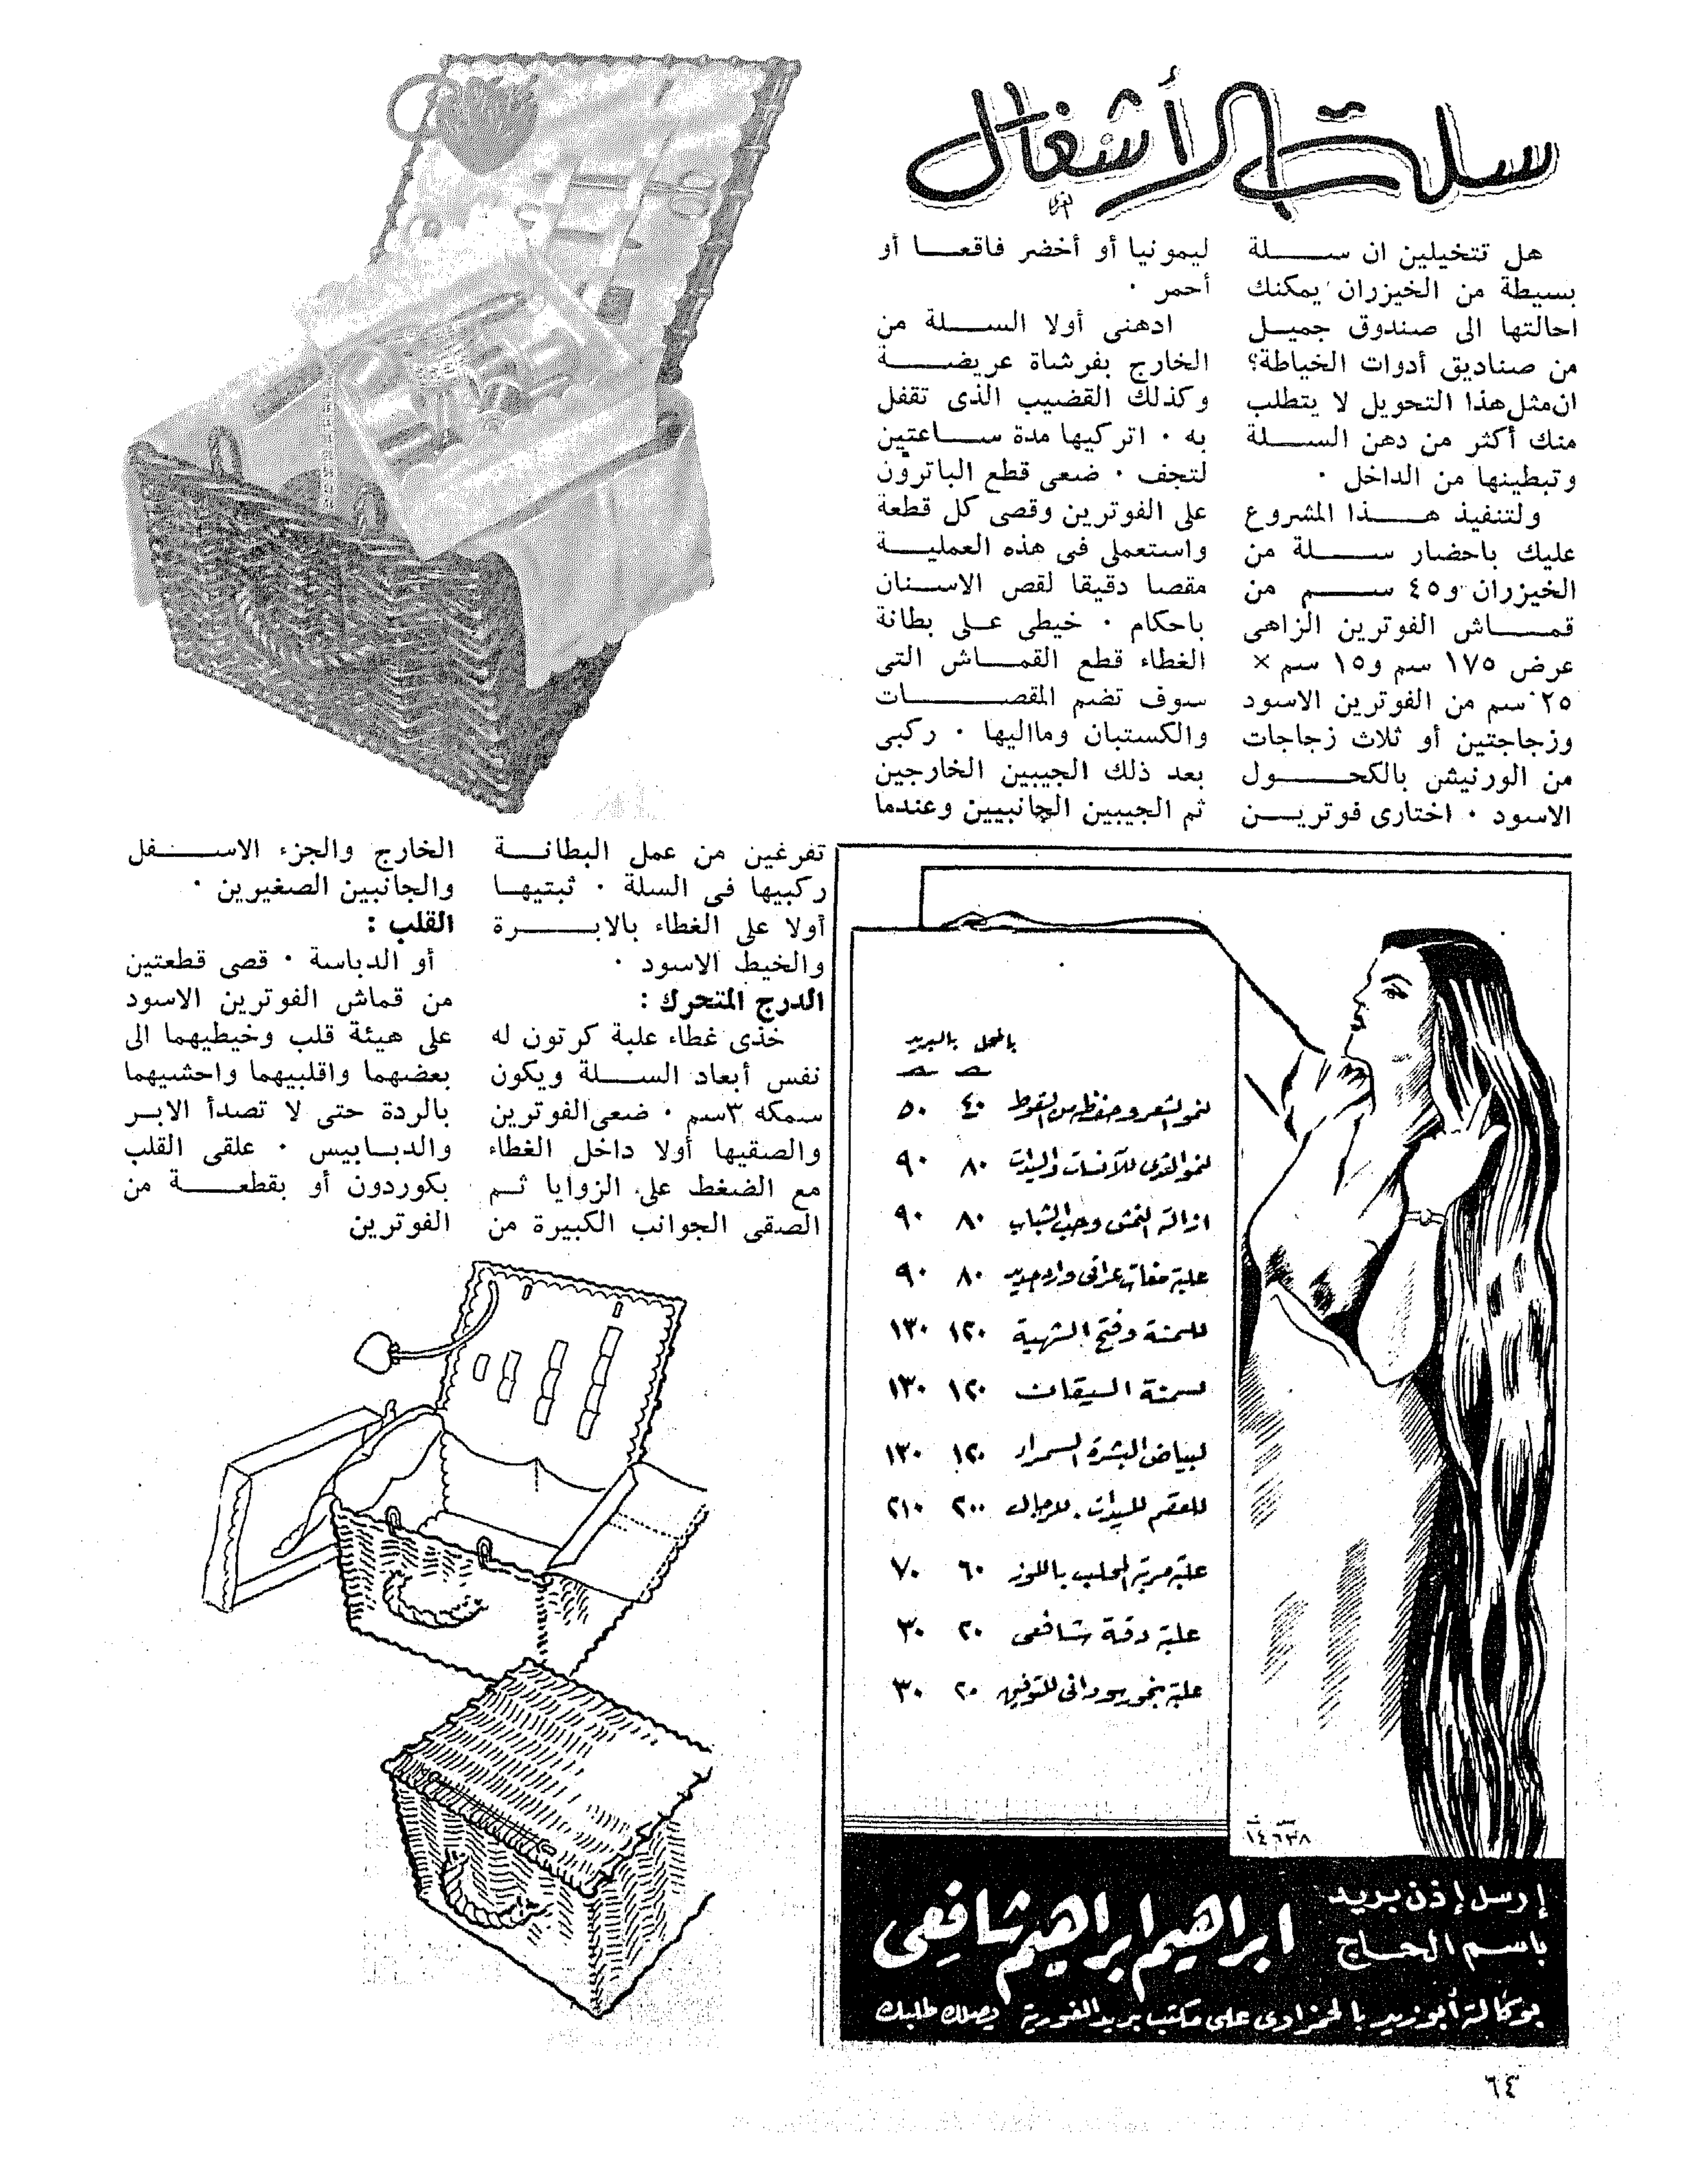 سلة الأشغال
هل تتخيلين ان سلة
بسيطة من الخيزران يمكنك
احالتها الى صندوق جميل
من صناديق أدوات الخياطة؟
ان مثل هذا التحويل لا يتطلب
منك أكثر من دهن السلة
وتبطينها من الداخل ٠
ولتنفيذ هذا المشروع
عليك باحضار سلة من
الخيزران و٤٥ سم من
قماش الفوترين الزاهى
عرض ١٧٥ سم و١٥ سم ×
٢٥ سم من الفوترين الاسود
وزجاجتين أو ثلاث زجاجات
من الورنيش بالكحول
الاسود ٠ اختارى فوترين
ليمونيا أو أخضر فاقعا أو
أحمر ٠
ادهنى أولا السلة من
الخارج بفرشاة عريضة
وكذلك القضيب الذى تقفل
به ٠ اتركيها مدة ساعتين
لتجف ٠ ضعى قطع الباترون
على الفوترين وقصى كل قطعة
واستعملى فى هذه العملية
مقصا دقيقا لقص الاسنان
باحكام ٠ خيطى على بطانة
الغطاء قطع القماش التى
سوف تضم المقصات
والكستبان وماليها ٠ ركبى
بعد ذلك الجيبين الخارجين
ثم الجيبين الجانبيين وعندما
تفرغين من عمل البطانة
ركبيها فى السلة ٠ ثبتيها
أولا على الغطاء بالابرة
والخيط الاسود ٠
الدرج المتحرك :
خذى غطاء علبة كرتون له
نفس أبعاد السلة ويكون
سمكه ٣سم ٠ ضعى الفوترين
والصقيها أولا داخل الغطاء
مع الضغط على الزوايا ثم
الصقى الجوانب الكبيرة من
الخارج والجزء الاسفل
والجانبين الصغيرين ٠
القلب :
أو الدباسة ٠ قصى قطعتين
من قماش الفوترين الاسود
على هيئة قلب وخيطيهما الى
بعضهما واقلبيهما واحشيهما
بالردة حتى لا تصدأ الابر
والدبابيس ٠ علقى القلب
بكوردون أو بقطعة من
الفوترين
بالمحل بالبريد
لنمو الشعر وحفظه من السقوط ٤٠ ٥٠
لنمو الثدى للآنسات والسيدات ٨٠ ٩٠
ازالة النمش وحب الشباب ٨٠ ٩٠
علبة مغات عراقى وارد جديد ٨٠ ٩٠
للسمنة وفتح الشهية ١٢٠ ١٣٠
لسمنة السيقان ١٢٠ ١٣٠
لبياض البشرة السمراء ١٢٠ ١٣٠
للعقم للسيدات . للرجال ٢٠٠ ٢١٠
علبة مربة المحلب باللوز ٦٠ ٧٠
علبة دقة شافعى ٢٠ ٣٠
علبة بخور سودانى للتوفيق ٢٠ ٣٠
س ت
١٤٦٣٨
إرسل إذن بريد
باسم الحاج
ابراهيم ابراهيم شافعى
بوكالة أبو زيد بالحمزاوى على مكتب بريد الغورية يصلك طلبك
٦٤